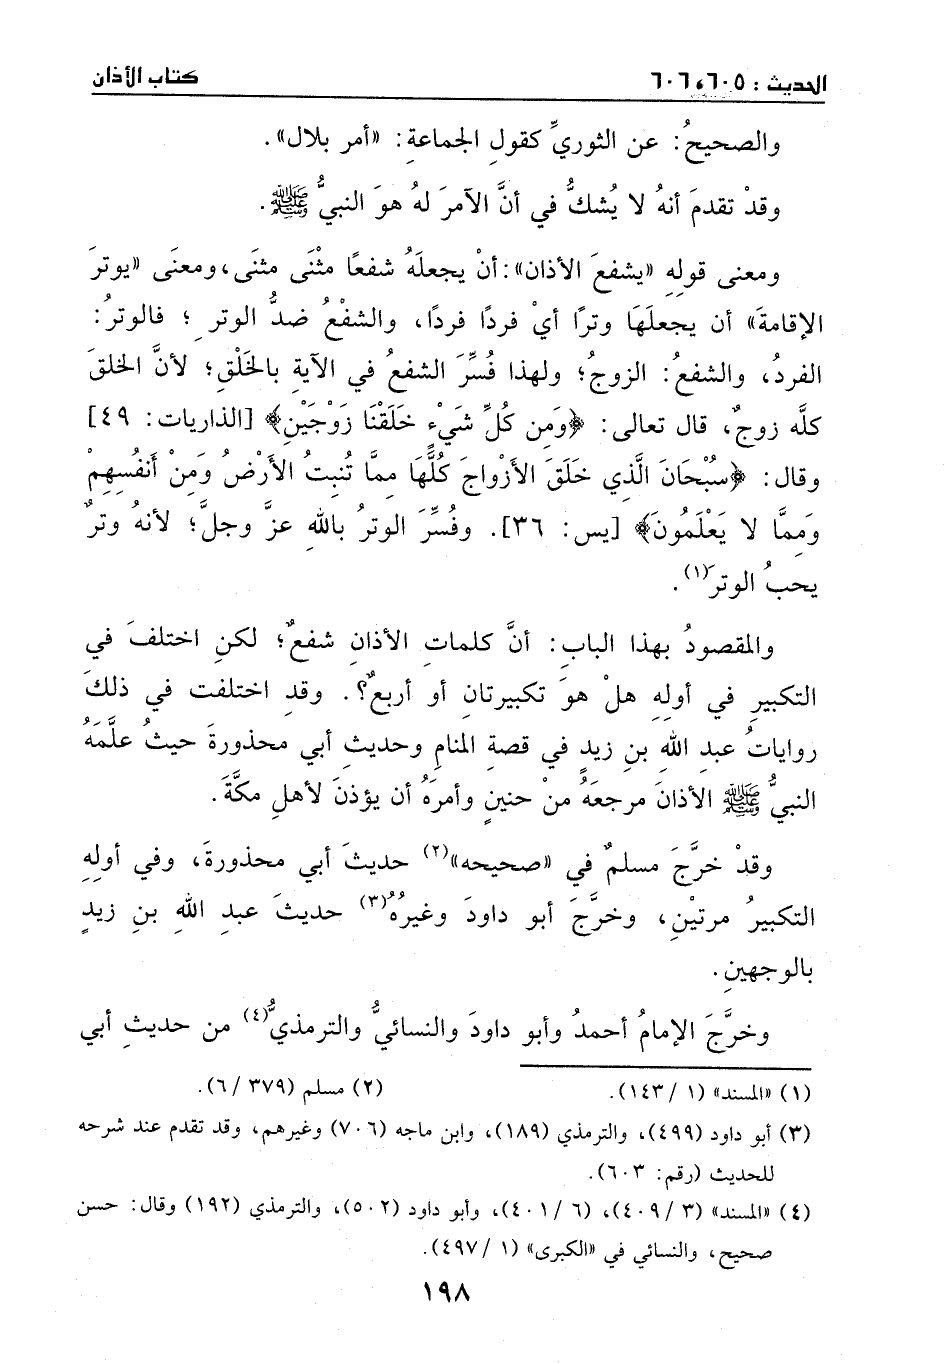 الحديث : ٦٠٥، ٦٠٦ كتاب الأذان
والصحيحُ: عن الثوريِّ كقولِ الجماعةِ: «أمر بلال».
وقدْ تقدمَ أنهُ لا يُشكُّ في أنَّ الآمرَ لهُ هوَ النبيُّ ﷺ.
ومعنى قولِهِ «يشفعَ الأذان»: أنْ يجعلَهُ شفعًا مثْنَى مثنَى، ومعنَى «يوترَ
الإقامةَ» أن يجعلَهَا وترًا أيْ فردًا فردًا، والشفْعُ ضدُّ الوترِ ؛ فالوترُ:
الفردُ، والشفعُ: الزوجُ؛ ولهذا فُسِّرَ الشفعُ في الآيةِ بالخَلْقِ؛ لأنَّ الخلقَ
كلَّه زوجٌ، قال تعالى: ﴿وَمِن كُلِّ شَيْءٍ خَلَقْنَا زَوْجَيْنِ﴾ [الذاريات: ٤٩]
وقال: ﴿سُبْحَانَ الَّذِي خَلَقَ الأَزْوَاجَ كُلَّهَا مِمَّا تُنبِتُ الأَرْضُ وَمِنْ أَنفُسِهِمْ
وَمِمَّا لا يَعْلَمُونَ﴾ [يس: ٣٦]. وفُسِّرَ الوترُ باللهِ عزَّ وجلَّ؛ لأنهُ وترٌ
يحبُ الوترَ(١).
والمقصودُ بهذا البابِ: أنَّ كلماتِ الأذانِ شفعٌ؛ لكنِ اختلفَ في
التكبيرِ في أولِهِ هلْ هوَ تكبيرتانِ أو أربعٌ؟. وقدِ اختلفت في ذلكَ
رواياتُ عبدِ اللهِ بنِ زيدٍ في قصةِ المنامِ وحديثِ أبي محذورةَ حيثُ علَّمَهُ
النبيُّ ﷺ الأذانَ مرجعَهُ منْ حنينٍ وأمرَهُ أن يؤذنَ لأهلِ مكَّةَ.
وقدْ خرَّجَ مسلمٌ في «صحيحه»(٢) حديثَ أبي محذورةَ، وفي أولِهِ
التكبيرُ مرتيْنِ، وخرَّجَ أبو داودَ وغيرُهُ(٣) حديثَ عبدِ اللهِ بنِ زيدٍ
بالوجهينِ.
وخرَّجَ الإمامُ أحمدُ وأبو داودَ والنسائيُّ والترمذيُّ(٤) من حديثِ أبي
(١) «المسند» (١/ ١٤٣). (٢) مسلم (٣٧٩/ ٦).
(٣) أبو داود (٤٩٩)، والترمذي (١٨٩)، وابن ماجه (٧٠٦) وغيرهم، وقد تقدم عند شرحه
للحديث (رقم: ٦٠٣).
(٤) «المسند» (٣/ ٤٠٩)، (٦/ ٤٠١)، وأبو داود (٥٠٢)، والترمذي (١٩٢) وقال: حسن
صحيح، والنسائي في «الكبرى» (١/ ٤٩٧).
١٩٨